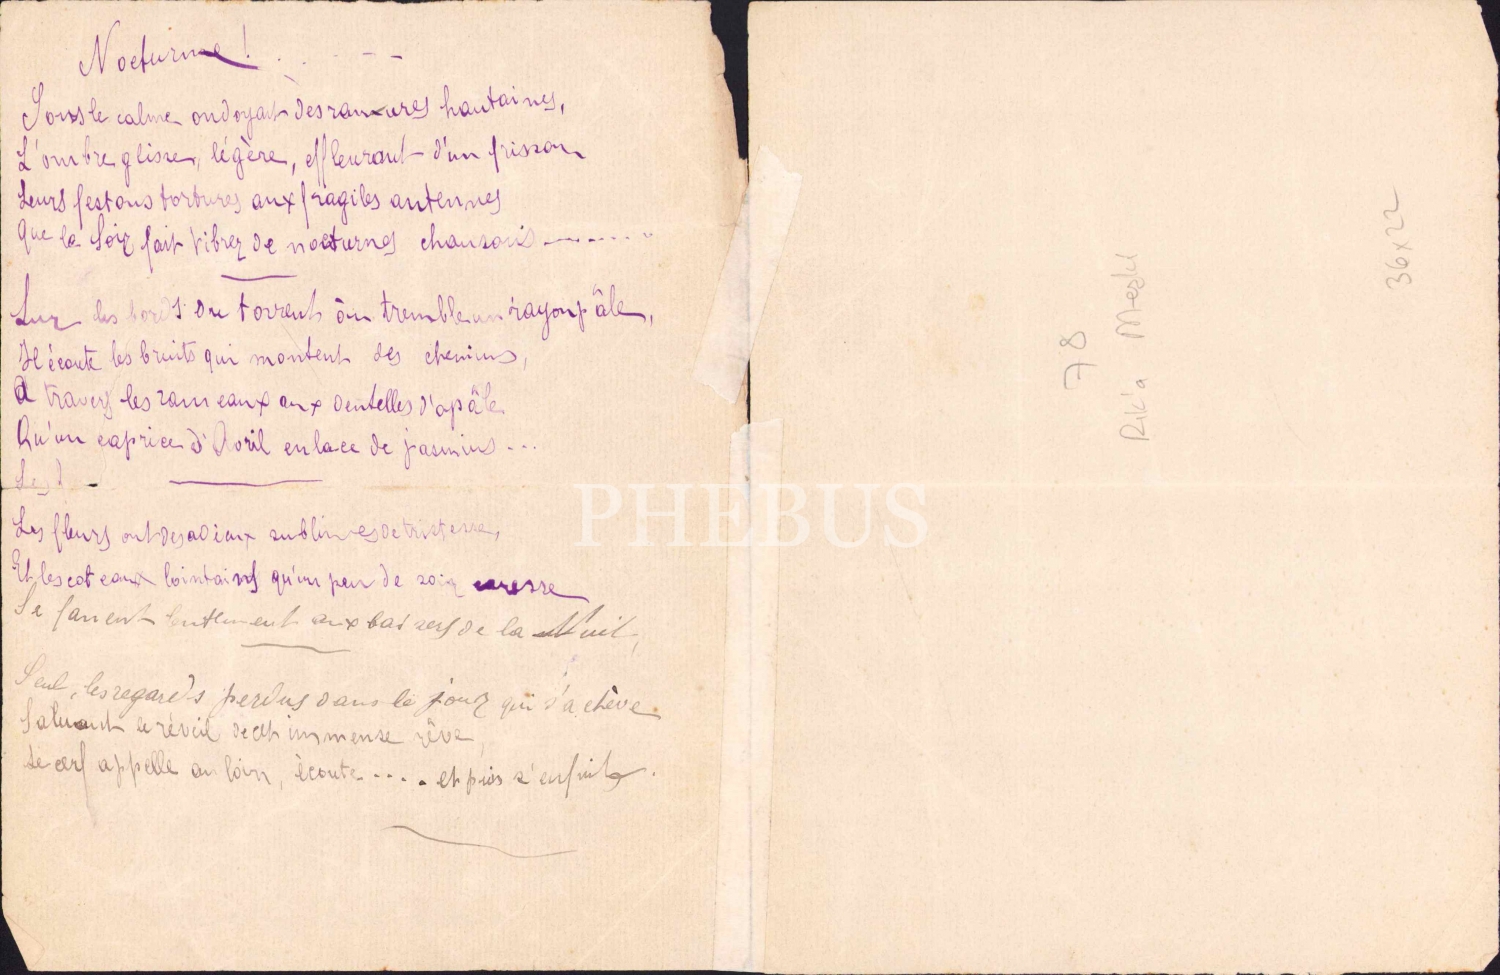 Nocturne ! . . . - -
Sous le calme ondoyant des ramures hautaines,
L'ombre glisse, légère, effleurant d'un frisson
Leurs festons tordures aux fragiles antennes
Que le Soir fait vibrer de nocturnes chansons -------
Sur les bords du torrent où tremble un rayon pâle,
Il écoute les bruits qui montent des chemins,
A travers les rameaux aux dentelles d'opâle
Qu'un caprice d'Avril enlace de jasmins ...
Les
Les fleurs ont des adieux sublimes de tristesse,
Et les coteaux lointains qu'un peu de soir caresse
Se fanent lentement aux baisers de la Nuit,
Seul, les regards perdus dans le jour qui s'achève
Saluant le réveil de cet immense rêve,
Le cerf appelle au loin, écoute .... et puis s'enfuit.
78
Rik'a
36x22
PHEBUS